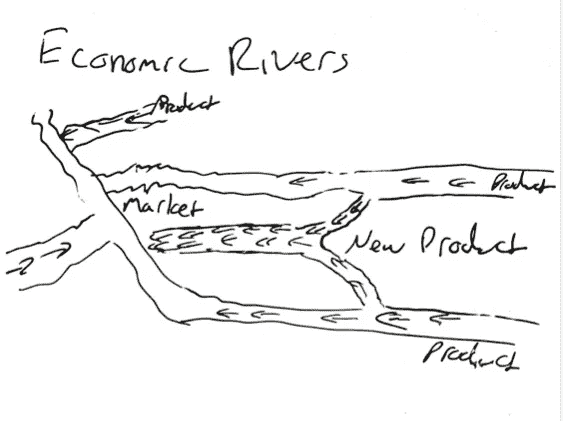 Economic Rivers
Product
Product
Market
New Product
Product